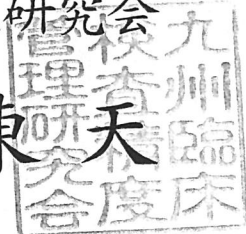 研究会
天
九州臨床
検査精度
管理研究会